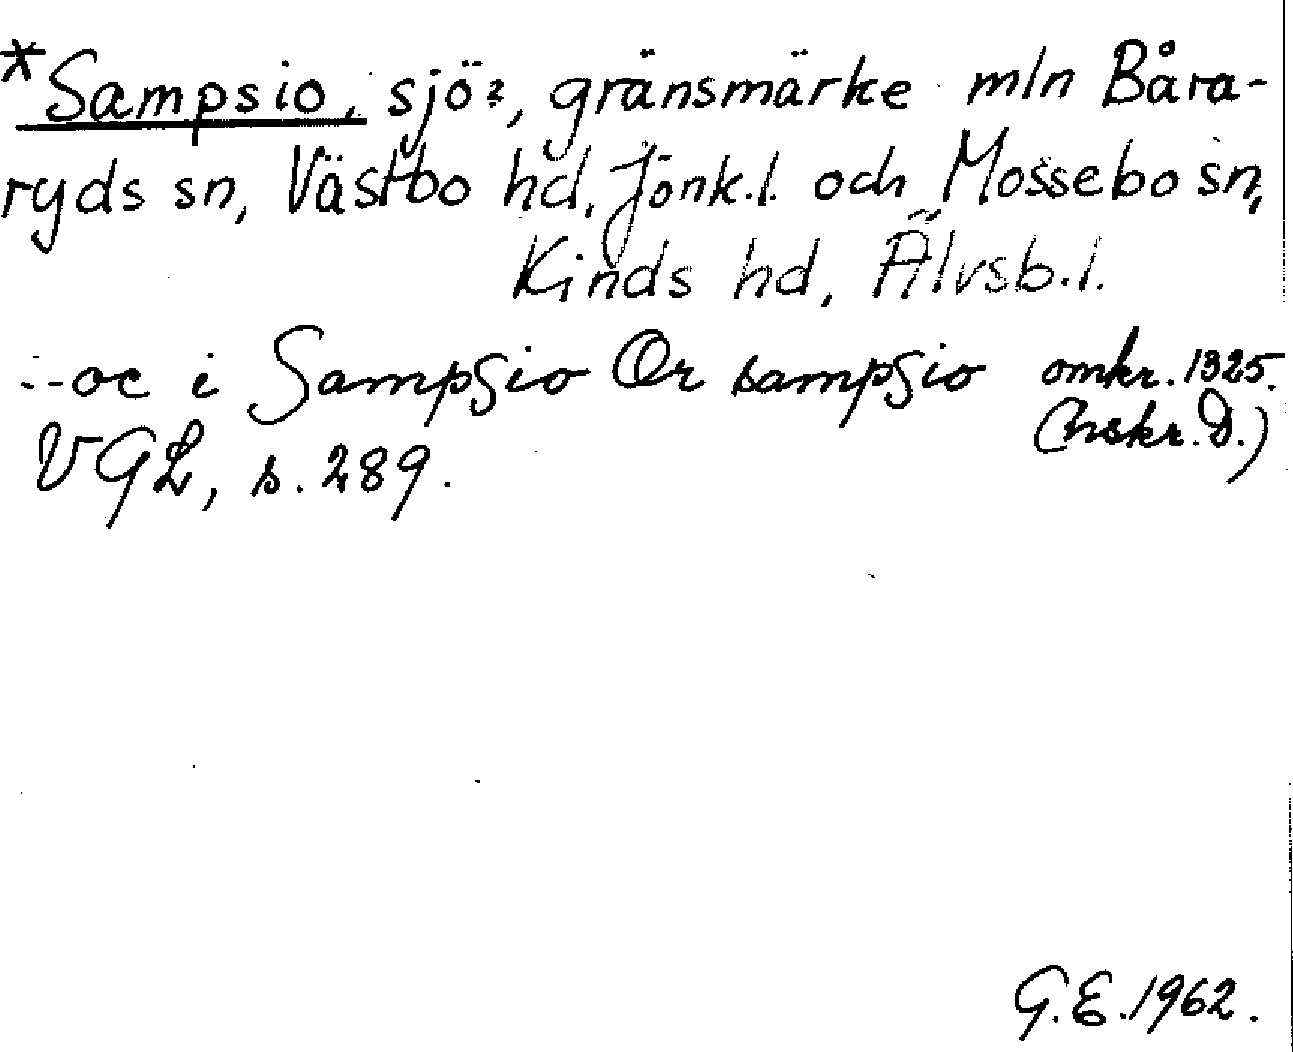 *Sampsio, sjö?, gränsmärke mln Båra-
ryds sn, Västbo hd, Jönk.l. och Mossebo sn,
Kinds hd, Älvsb.l.
:--oc i Sampsio Or sampsio omkr. 1325.
(hskr. D.)
VGL, s. 289.
G.E. 1962.